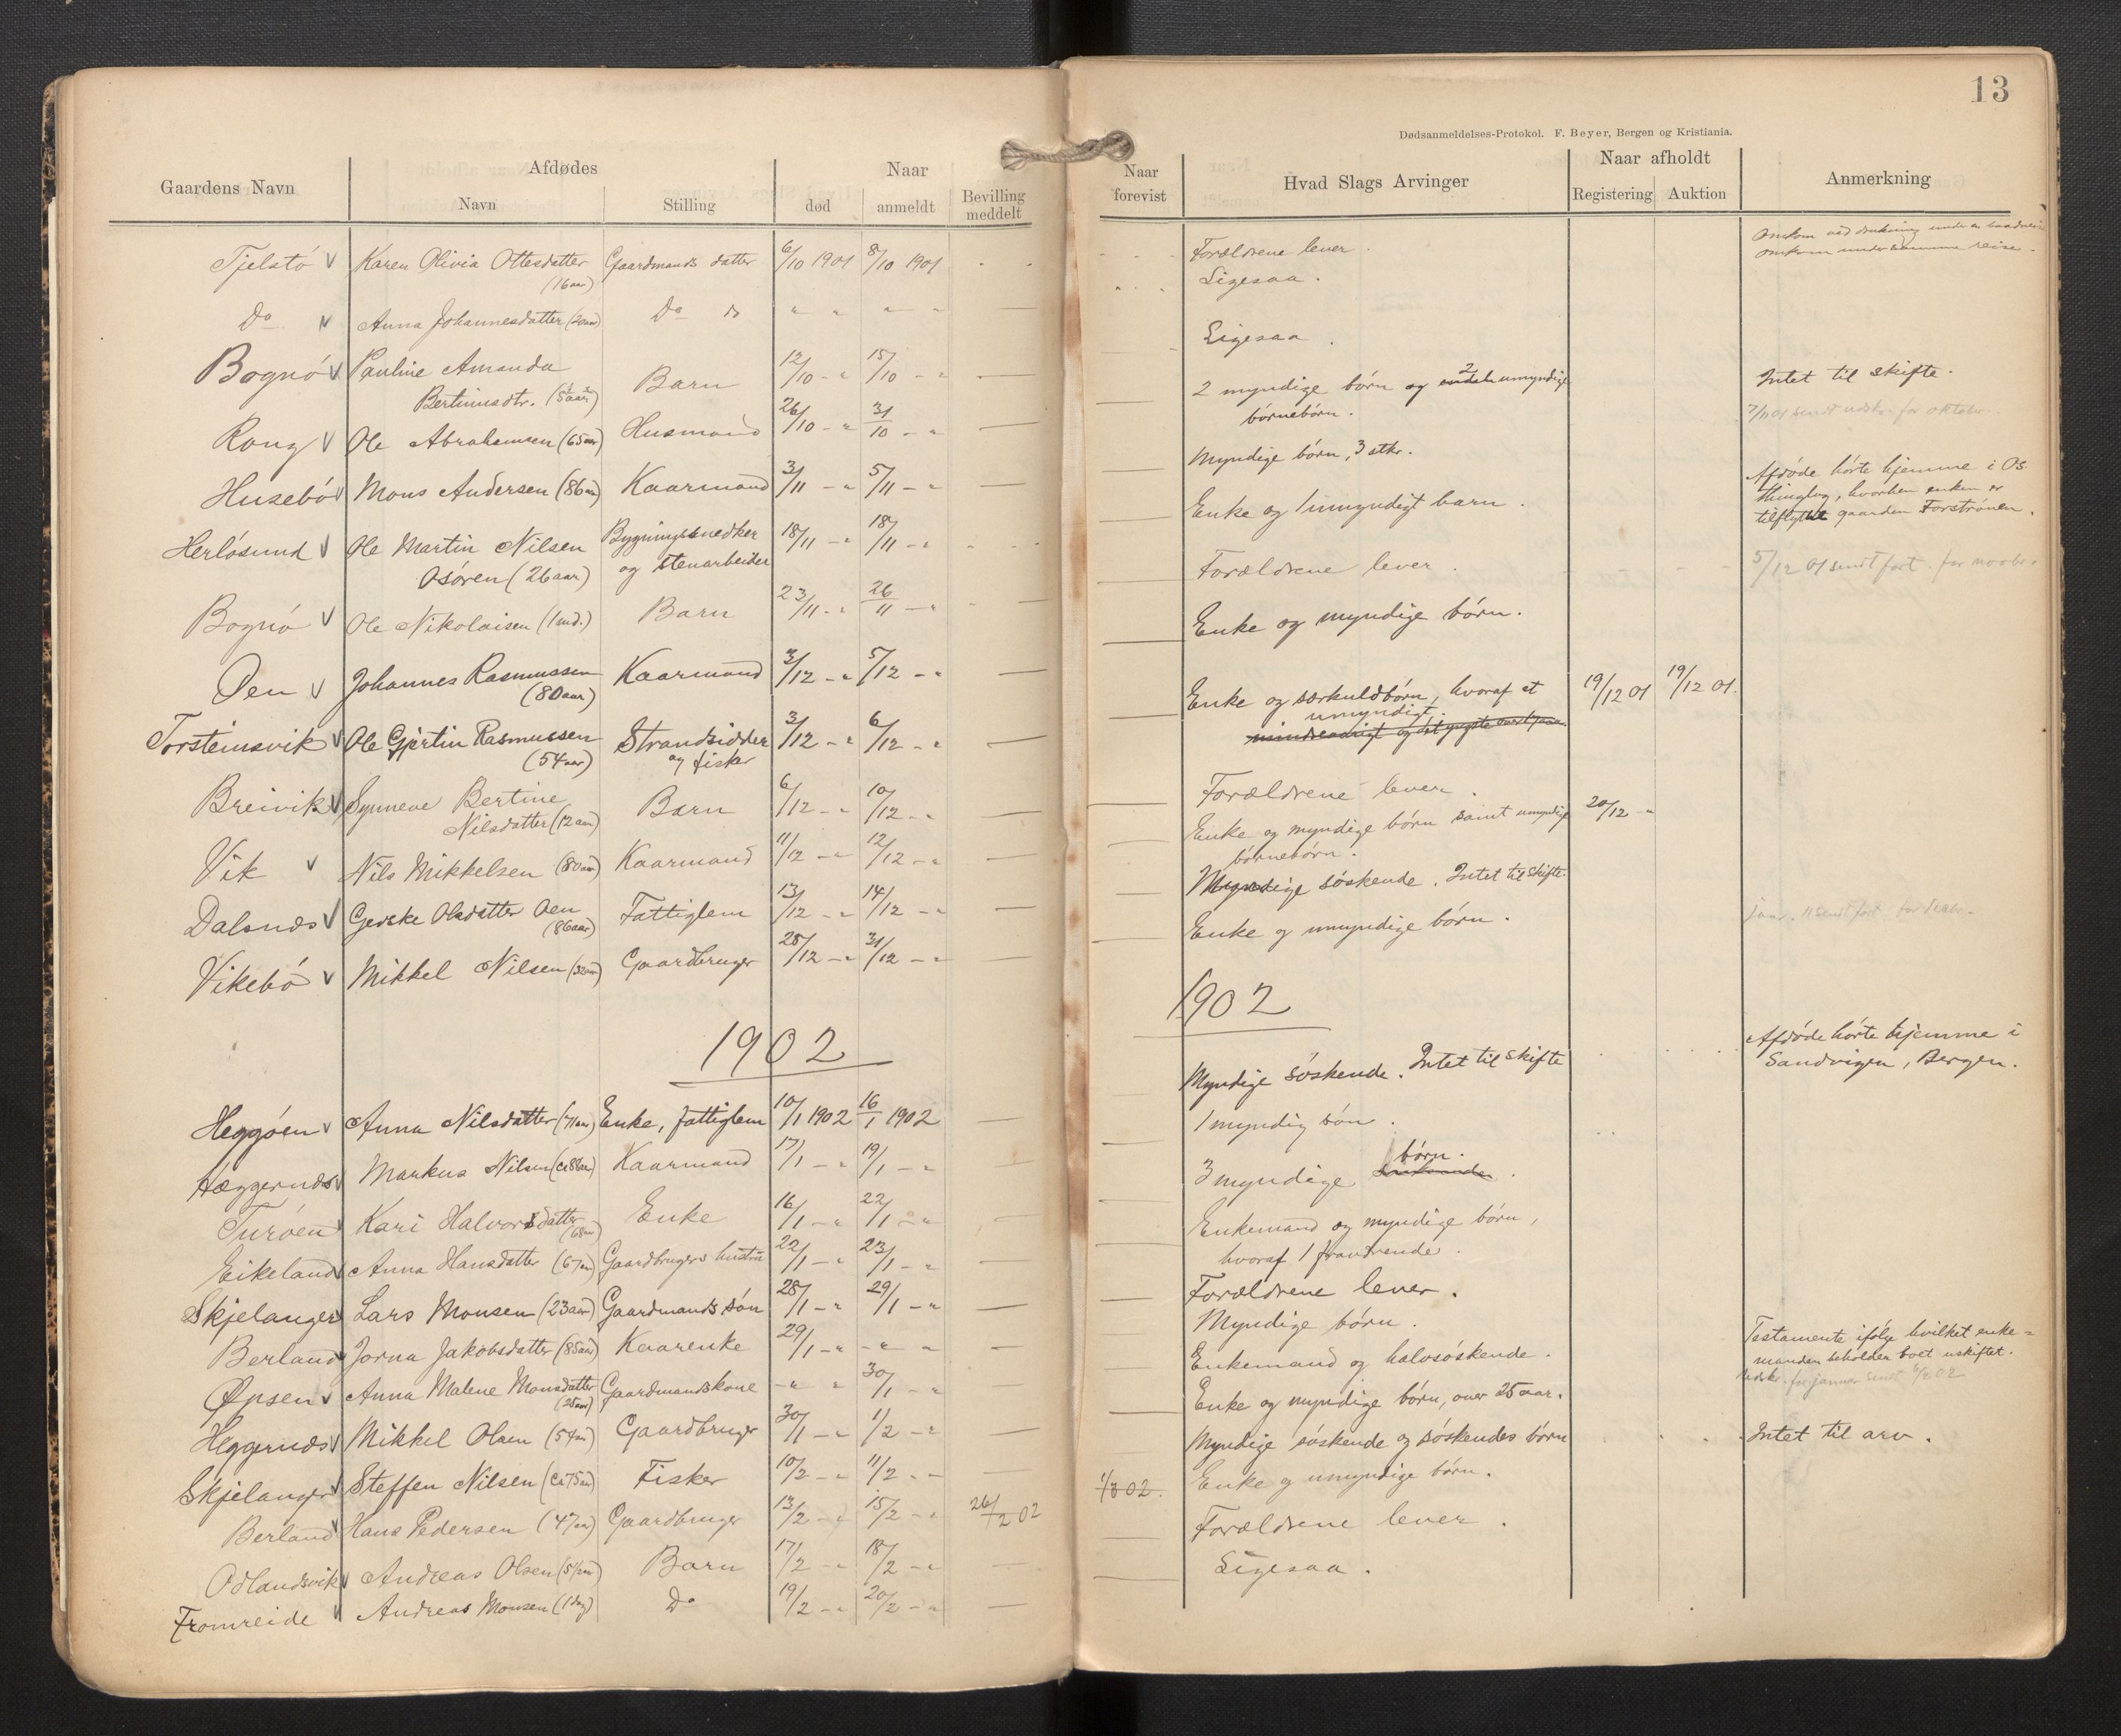 13
Dødsanmeldelses-Protokol. F. Beyer, Bergen og Kristiania.
Gaardens Navn
Afdødes
Navn
Stilling
Naar
død
anmeldt
Bevilling
meddelt
Tjelstø Karen Olivia Ottesdatter Gaardmands datter 6/10 1901 8/10 1901
(16 aar)
Do Anna Johannesdatter (20 aar) Do do " " " "
Bognø Pauline Amanda 12/10 - " 15/10 - "
Bertinusdtr. Barn
Rong Ole Abrahamsen (65 aar) Husmand 26/10 - " 31/10 - "
Husebø Mons Andersen (86 aar) Kaarmand 3/11 - " 5/11 - "
Herløsund Ole Martin Nilsen Bygningssnedker 18/11 - " 18/11 - "
Osøren (26 aar) og stenarbeider
Bognø Ole Nikolaisen (1 md.) Barn 23/11 - " 26/11 - "
Øen Johannes Rasmussen Kaarmand 3/12 - " 5/12 - "
(80 aar)
Torsteinsvik Ole Gjertin Rasmussen Strandsidder 3/12 - " 6/12 - "
(54 aar) og fisker
Breivik Synneve Bertine Barn 6/12 - " 10/12 - "
Nilsdatter (12 aar)
Vik Nils Mikkelsen (80 aar) Kaarmand 11/12 - " 12/12 - "
Dalsnæs Gjeske Olsdatter Oen Fattiglem 13/12 - " 14/12 - "
(86 aar)
Vikebø Mikkel Nilsen (32 aar) Gaardbruger 28/12 - " 31/12 - "
1902
Heggøen Anna Nilsdatter (71 aar) Enke, fattiglem 10/1 1902 16/1 1902
Hæggernæs Markus Nilsen (ca 88 aar) Kaarmand 17/1 - " 19/1 - "
Turøen Kari Halvorsdatter Enke 16/1 - " 22/1 - "
(68 aar)
Eikeland Anna Hansdatter (67 aar) Gaardbrugers hustru 22/1 - " 23/1 - "
Skjelanger Lars Monsen (23 aar) Gaardmands søn 28/1 - " 29/1 - "
Berland Jorna Jakobsdatter (85 aar) Kaarenke 29/1 - " - " "
Øpsen Anna Malene Monsdatter Gaardmandskone - " " 30/1 - "
(25 aar)
Heggernæs Mikkel Olsen (54 aar) Gaardbruger 30/1 - " 1/2 - "
Skjelanger Steffen Nilsen (ca 75 aar) Fisker 10/2 - " 11/2 - "
Berland Hans Pedersen (47 aar) Gaardbruger 13/2 - " 15/2 - " 26/2 02
Odlandsvik Andreas Olsen Barn 17/2 - " 18/2 - "
Fromreide Andreas Monsen (1 dag) Do 19/2 - " 20/2 - "
Naar
forevist
Hvad Slags Arvinger
Naar afholdt
Registering
Auktion
Anmerkning
Omkom ved drukning under en
Forældrene lever. omkom under samme reise.
Ligesaa.
Ligesaa.
2 myndige børn og 2 umyndige Intet til skifte.
børnebørn. 7/11 01 sendt udskr. for oktober
Myndige børn, 3 stkr.
Afdøde hørte hjemme i Os
Enke og 1 umyndigt barn. thinglag, hvorhen enken er
tilflyttet gaarden Forstrønen.
Forældrene lever. 5/12 01 sendt fort. for novbr.
Enke og myndige børn.
Enke og særkuldbørn, hvoraf et 19/12 01 19/12 01.
umyndigt.
Forældrene lever.
Enke og myndige børn samt umyndige 20/12 - "
børnebørn.
Myndige søskende. Intet til skifte.
Enke og umyndige børn.
1902
Afdøde hørte hjemme i
Myndige søskende. Intet til skifte Sandvigen, Bergen.
1 myndig søn.
børn.
3 myndige
Enkemand og myndige børn,
hvoraf 1 fraværende.
Forældrene lever.
Myndige børn.
Testamente ifølge hvilket enke=
Enkemand og halvsøskende. manden beholder boet uskiftet.
Udskr. for januar sendt 5/2 02
Enke og myndige børn, over 25 aar.
Myndige søskende og søskendes børn Intet til arv.
1/3 02. Enke og umyndige børn.
Forældrene lever.
Ligesaa.